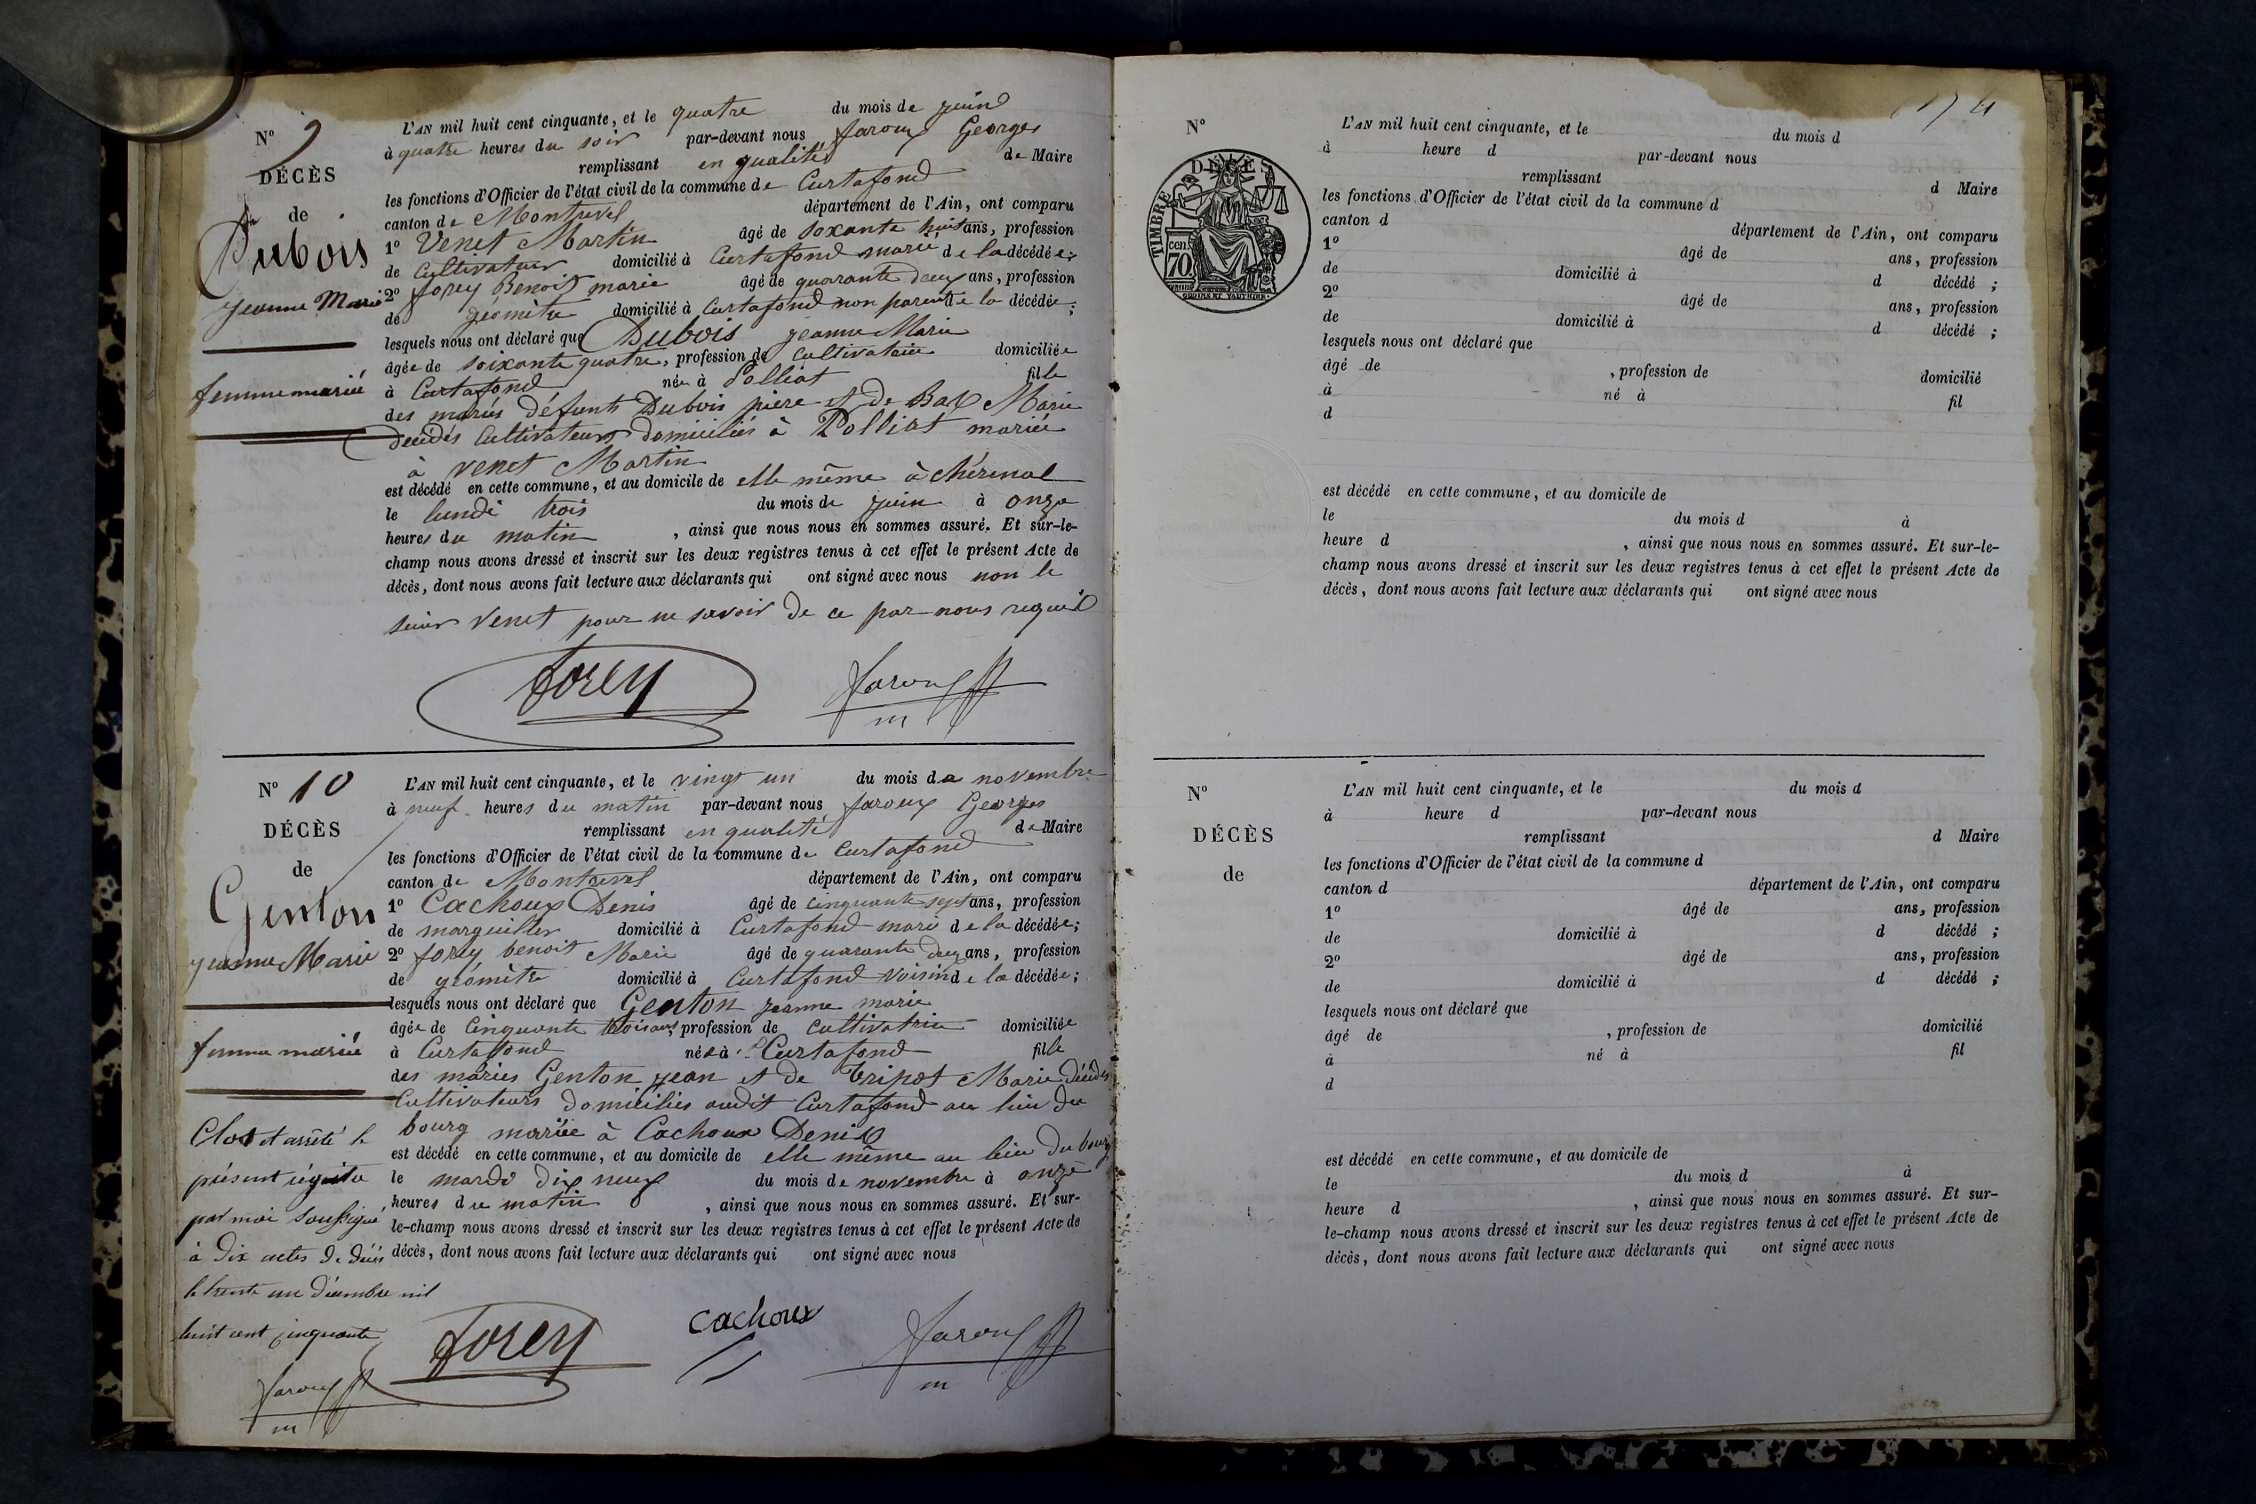 N° 9
DÉCÈS
de
Dubois
jeanne Marie
femme mariée
L'AN mil huit cent cinquante, et le quatre du mois de juin
à quatre heures du soir par-devant nous faroux Georges
remplissant en qualité de Maire
les fonctions d'Officier de l'état civil de la commune de Curtafond
canton de Montrevel département de l'Ain, ont comparu
1° Venet Martin âgé de soxante huit ans, profession
de cultivateur domicilié à Curtafond mari de la décédée;
2° forey Benoit marie âgé de quarante deux ans, profession
de géomètre domicilié à Curtafond non parent de la décédée;
lesquels nous ont déclaré que Dubois jeanne Marie
âgée de soixante quatre, profession de cultivatrice domiciliée
à Curtafond née à Polliat fille
des mariés défunts Dubois piere et de Bax Marie
décédés cultivateurs domiciliés à Polliat mariée
à venet Martin
est décédé en cette commune, et au domicile de elle même à
le lundi trois du mois de juin à onze
heures du matin, ainsi que nous nous en sommes assuré. Et sur-le-
champ nous avons dressé et inscrit sur les deux registres tenus à cet effet le présent Acte de
décès, dont nous avons fait lecture aux déclarants qui ont signé avec nous non le
sieur venet pour ne savoir de ce par nous requis
forey faroux
m
N° 10
DÉCÈS
de
Genton
jeanne Marie
femme mariée
L'AN mil huit cent cinquante, et le vingt un du mois de novembre
à neuf heures du matin par-devant nous faroux Georges
remplissant en qualité de Maire
les fonctions d'Officier de l'état civil de la commune de Curtafond
canton de Montrevel département de l'Ain, ont comparu
1° Cachoux Denis âgé de cinquante sept ans, profession
de marguiller domicilié à Curtafond mari de la décédée;
2° forey benoit Marie âgé de quarante deux ans, profession
de géomètre domicilié à Curtafond voisin de la décédée;
lesquels nous ont déclaré que Genton jeanne marie
âgée de cinquante trois ans, profession de cultivatrice domiciliée
à Curtafond née à Curtafond fille
des mariés Genton jean et de Tripot Marie décédés
cultivateurs domiciliés audit Curtafond au lieu du
bourg mariée à Cachoux Denis
est décédé en cette commune, et au domicile de elle même au lieu du bourg
le mardi dix neuf du mois de novembre à onze
heures du matin, ainsi que nous nous en sommes assuré. Et sur-
le-champ nous avons dressé et inscrit sur les deux registres tenus à cet effet le présent Acte de
décès, dont nous avons fait lecture aux déclarants qui ont signé avec nous
Clos et arrêté le
présent régistre
par moi soussigné
à dix actes de décès
le trente un décembre mil
huit cent cinquante
faroux
m
forey cachoux faroux
m
N°
DÉCÈS
TIMBRE
cen.
70
L'AN mil huit cent cinquante, et le du mois d
à heure d par-devant nous
remplissant d Maire
les fonctions d'Officier de l'état civil de la commune d
canton d département de l'Ain, ont comparu
1° âgé de ans, profession
de domicilié à d décédé ;
2° âgé de ans, profession
de domicilié à d décédé ;
lesquels nous ont déclaré que
âgé de , profession de domicilié
à né à fil
d
est décédé en cette commune, et au domicile de
le du mois d à
heure d , ainsi que nous nous en sommes assuré. Et sur-le-
champ nous avons dressé et inscrit sur les deux registres tenus à cet effet le présent Acte de
décès, dont nous avons fait lecture aux déclarants qui ont signé avec nous
N°
DÉCÈS
de
L'AN mil huit cent cinquante, et le du mois d
à heure d par-devant nous
remplissant d Maire
les fonctions d'Officier de l'état civil de la commune d
canton d département de l'Ain, ont comparu
1° âgé de ans, profession
de domicilié à d décédé ;
2° âgé de ans, profession
de domicilié à d décédé ;
lesquels nous ont déclaré que
âgé de , profession de domicilié
à né à fil
d
est décédé en cette commune, et au domicile de
le du mois d à
heure d , ainsi que nous nous en sommes assuré. Et sur-
le-champ nous avons dressé et inscrit sur les deux registres tenus à cet effet le présent Acte de
décès, dont nous avons fait lecture aux déclarants qui ont signé avec nous